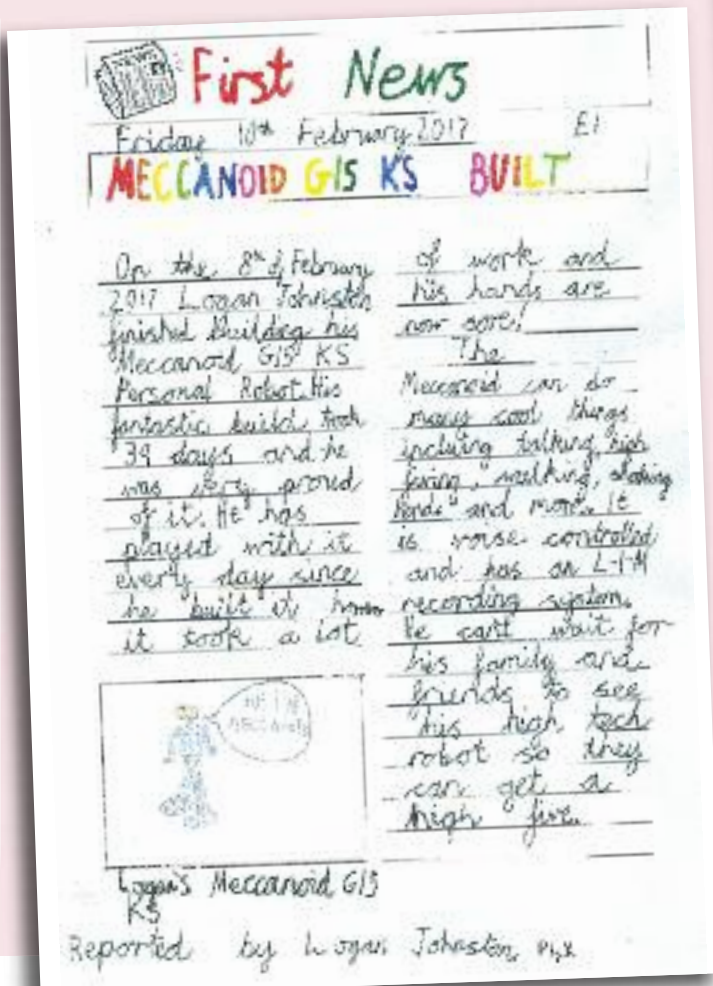 First News
Friday 10th February 2017 £1
MECCANOID G15 KS BUILT
On the 8th of February
2017 Logan Johnston
finished building his
Meccanoid G15 KS
Personal Robot. His
fantastic build took
39 days and he
was very proud
of it. He has
played with it
every day since
he built it
it took a lot
of work and
his hands are
now sore!
The
Meccanoid can do
many cool things
including talking, high
fiving, walking, shaking
hands and more. It
is voice controlled
and has an L-I-M
recording system.
He can't wait for
his family and
friends to see
his high tech
robot so they
can get a
high five.
MECCANOID
Logan's Meccanoid G15
KS
Reported by Logan Johnston